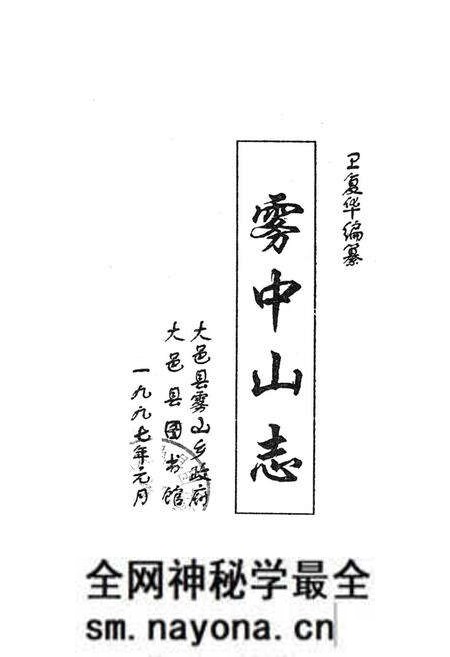 卫复华编纂
雾中山志
大邑县雾山乡政府
大邑县图书馆
一九九七年元月
全网神秘学最全
sm.nayona.cn